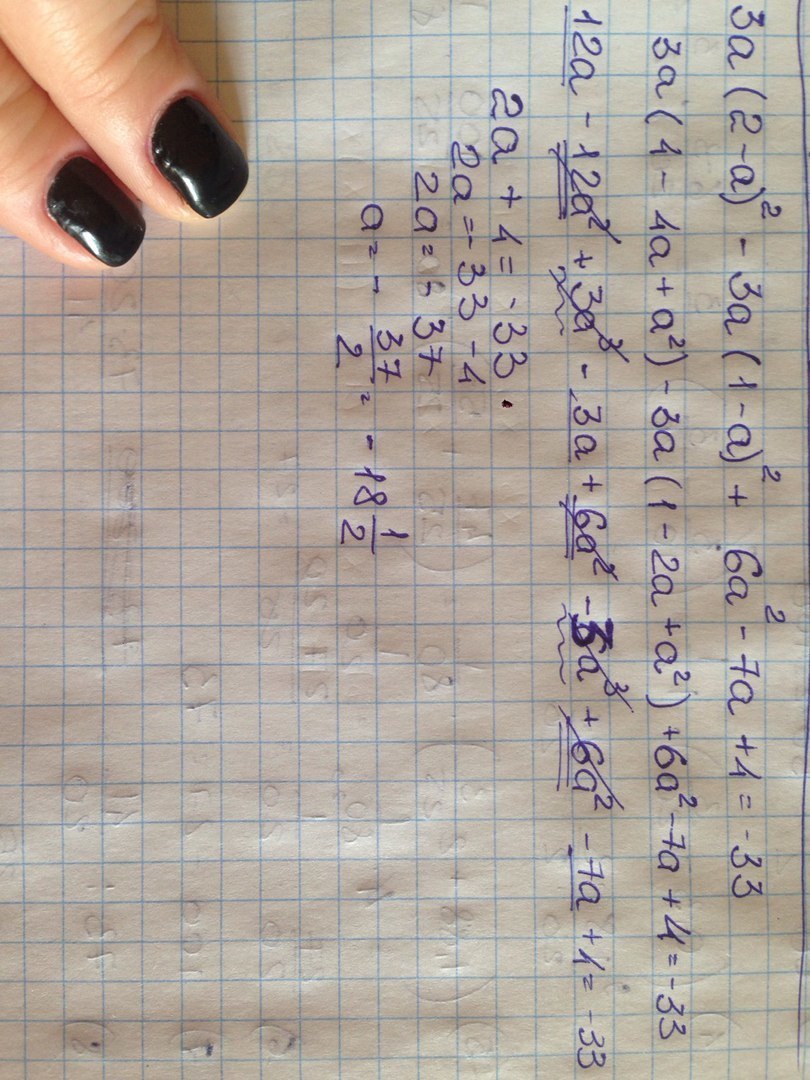 3a(2-a)² - 3a(1-a)² + 6a² - 7a + 4 = -33
3a(4 - 4a + a²) - 3a(1 - 2a + a²) + 6a² - 7a + 4 = -33
12a - 12a² + 3a³ - 3a + 6a² - 3a³ + 6a² - 7a + 4 = -33
2a + 4 = -33.
2a = -33 - 4
2a = -37
a = - 37/2 = - 18 1/2